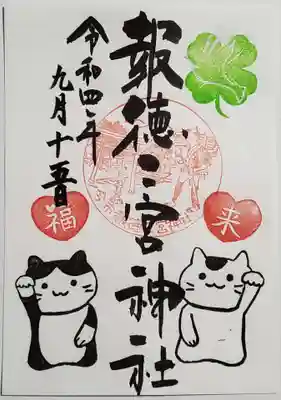 報徳二宮神社
令和四年
九月十五日
福
来